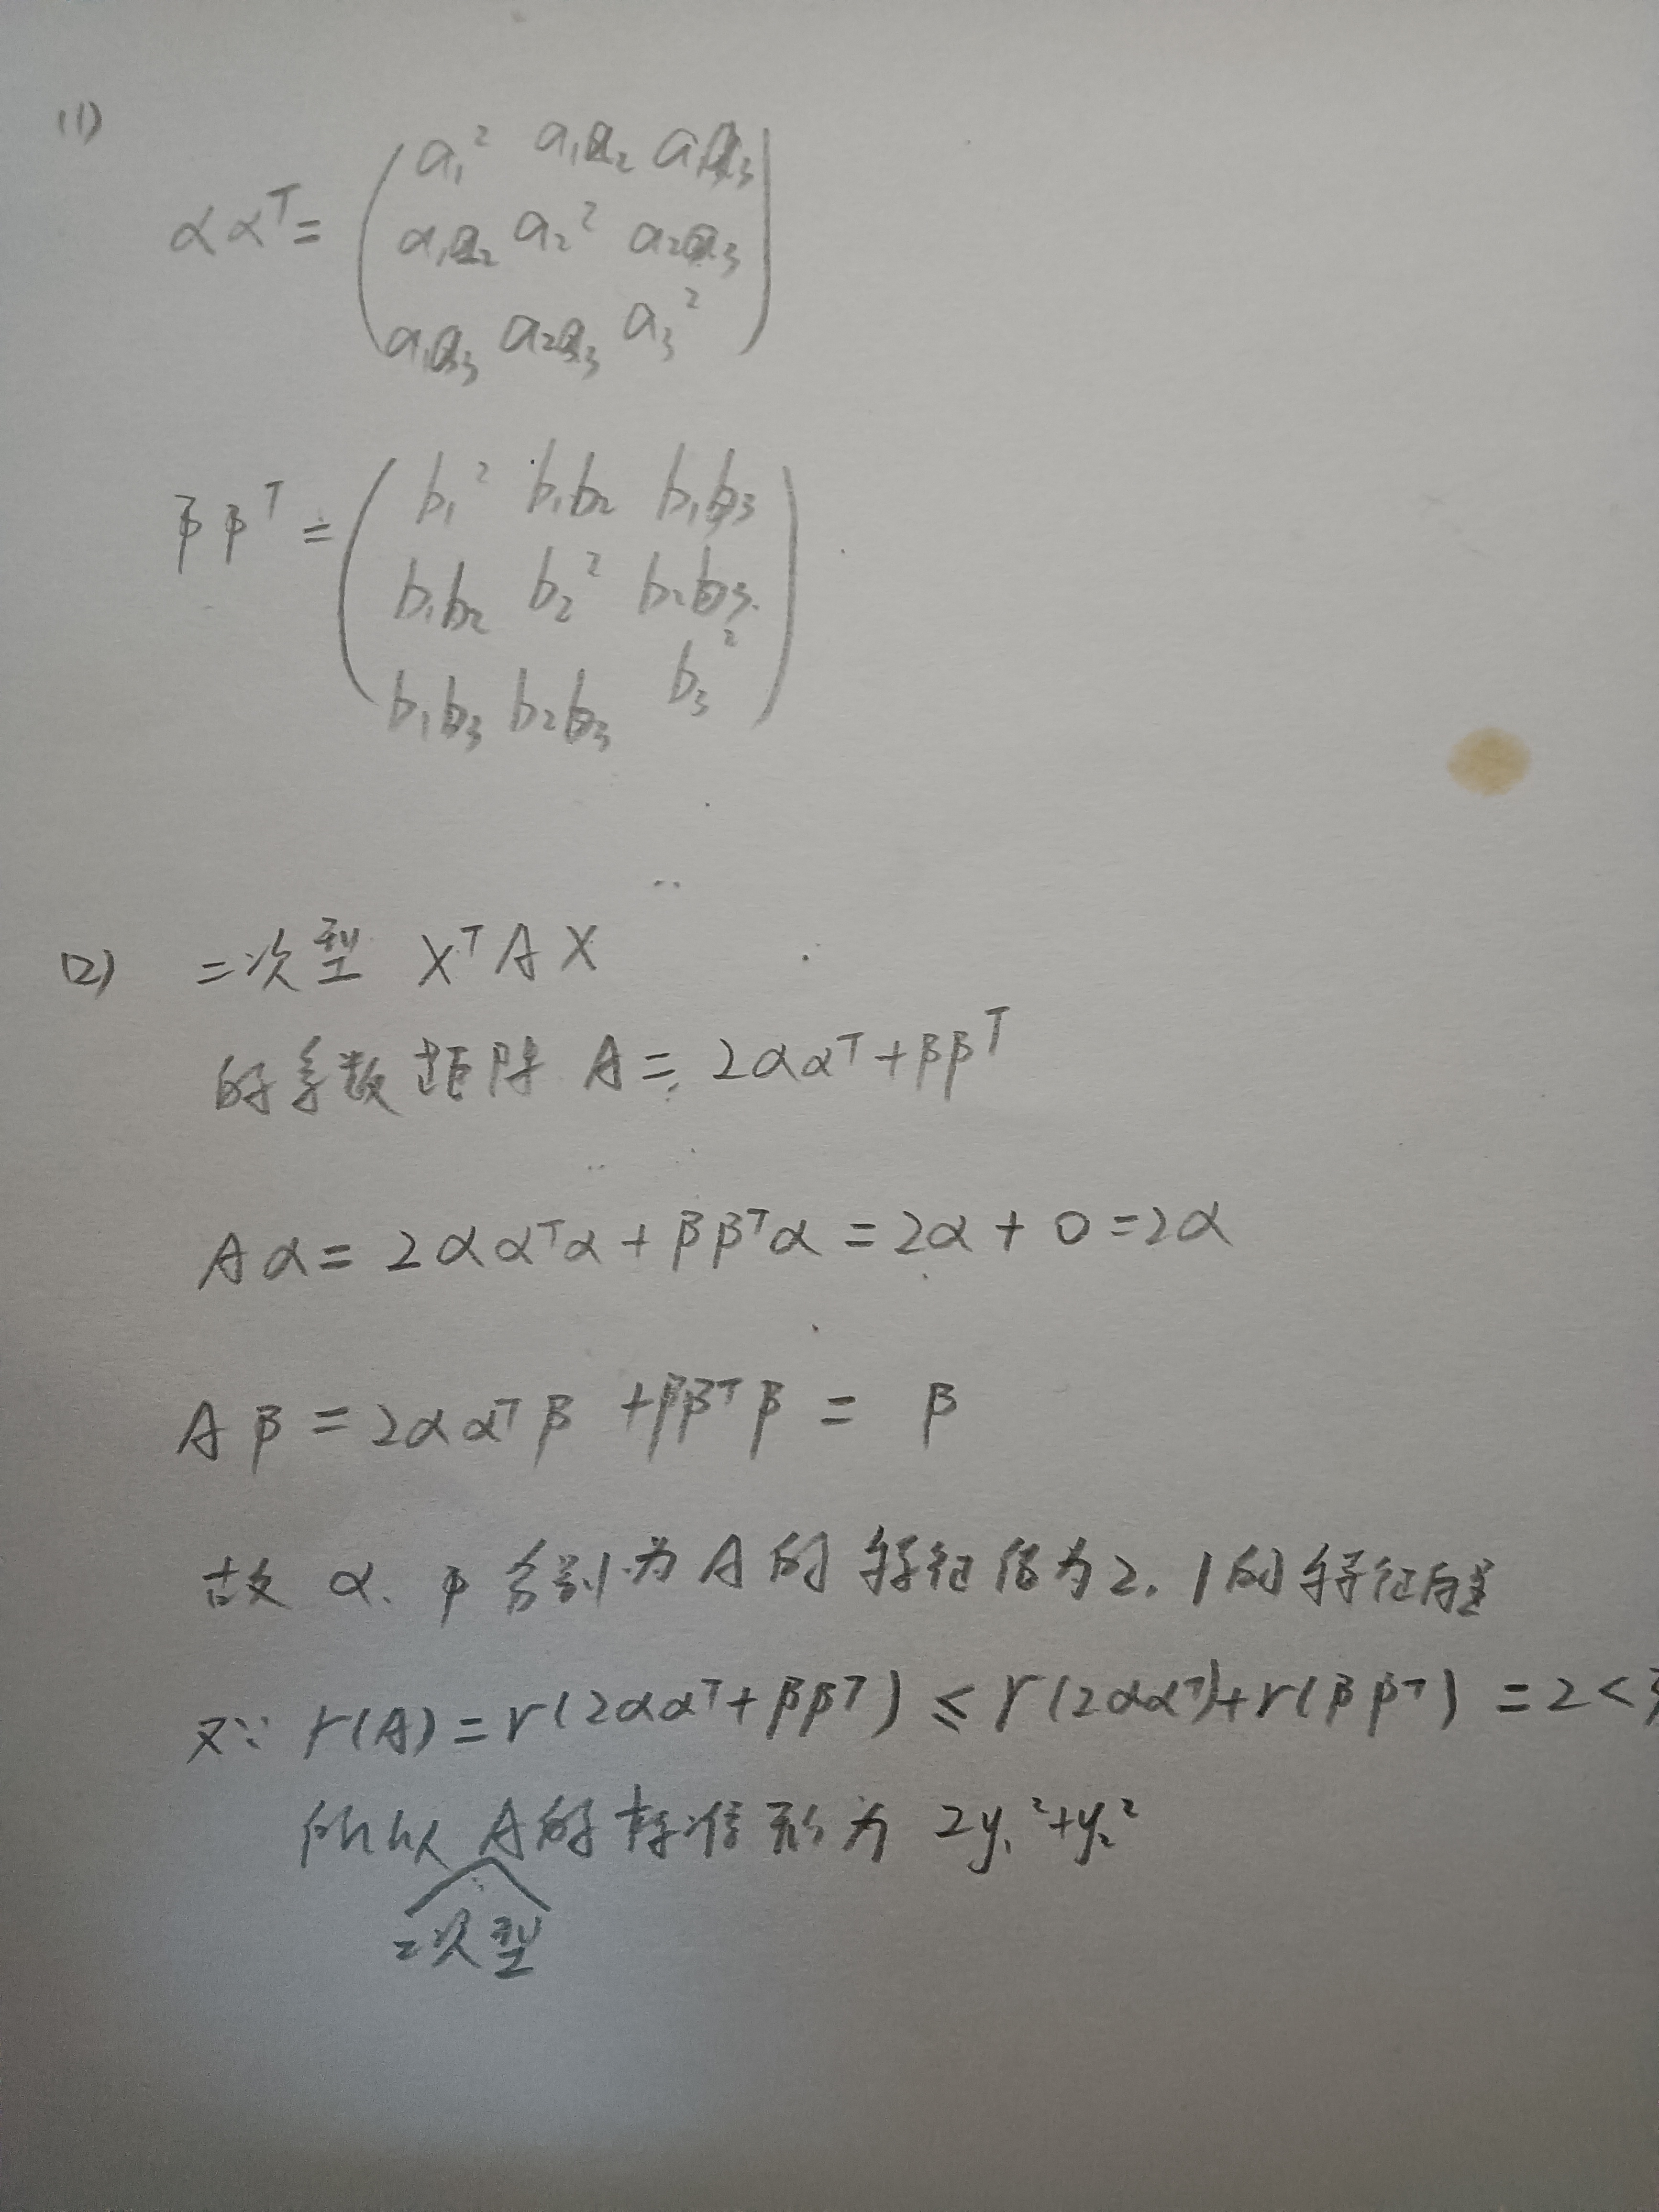 (1)
αα^T = ( a₁² a₁a₂ a₁a₃
a₁a₂ a₂² a₂a₃
a₁a₃ a₂a₃ a₃² )
ββ^T = ( b₁² b₁b₂ b₁b₃
b₁b₂ b₂² b₂b₃
b₁b₃ b₂b₃ b₃² )
(2) 二次型 X^T A X
的系数矩阵 A = 2αα^T + ββ^T
Aα = 2αα^Tα + ββ^Tα = 2α + 0 = 2α
Aβ = 2αα^Tβ + ββ^Tβ = β
故 α、β分别为A的特征值为2、1的特征向量
又∵ r(A) = r(2αα^T + ββ^T) ≤ r(2αα^T) + r(ββ^T) = 2 < 3
所以 A的标准形为 2y₁² + y₂²
二次型